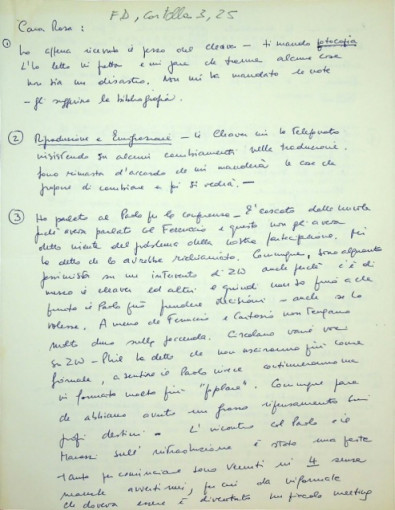 FD, Cartella 3, 25
Cara Rosa:
① Ho appena ricevuto il pezzo del Cleaver – ti mando fotocopia
L'ho letto in fretta e mi pare che tranne alcune cose
non sia un disastro. Non mi ha mandato le note
– gli suggerirò la bibliografia.
② Riproduzione e Emigrazione – il Cleaver mi ha telefonato
insistendo su alcuni cambiamenti nella traduzione.
Sono rimasta d'accordo che mi manderà le cose che
propone di cambiare e poi si vedrà. –
③ Ho parlato al Paolo per la conferenza – È cascato dalle nuvole
perché aveva parlato col Ferruccio e questo non gli aveva
detto niente del problema della nostra partecipazione. Poi
ha detto che lo avrebbe richiamato. Comunque, sono alquanto
pessimista su un intervento di ZW anche perché c'è di
mezzo il Cleaver ed altri e quindi non so fino a che
punto il Paolo può prendere decisioni – anche se lo
volesse. A meno che Ferruccio e Cartosio non tengano
molto duro sulla faccenda. Circolano varie voci
su ZW – Phil ha detto che non usciranno più come
giornale, a sentire il Paolo invece continueranno ma
in formato molto più "        ". Comunque pare
che abbiano avuto un grosso ripensamento sui
propri destini – L'incontro col Paolo e il
Marazzi sull'introduzione è stato una festa
Tanto per cominciare sono venuti in 4 senza
manco avvertirmi, per cui da informale
che doveva essere è diventato un piccolo meeting